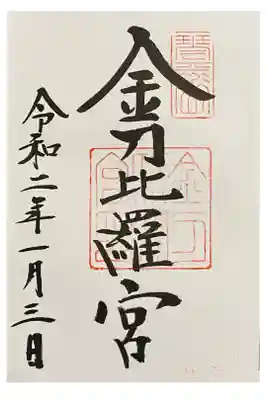 金刀比羅宮
令和二年一月三日